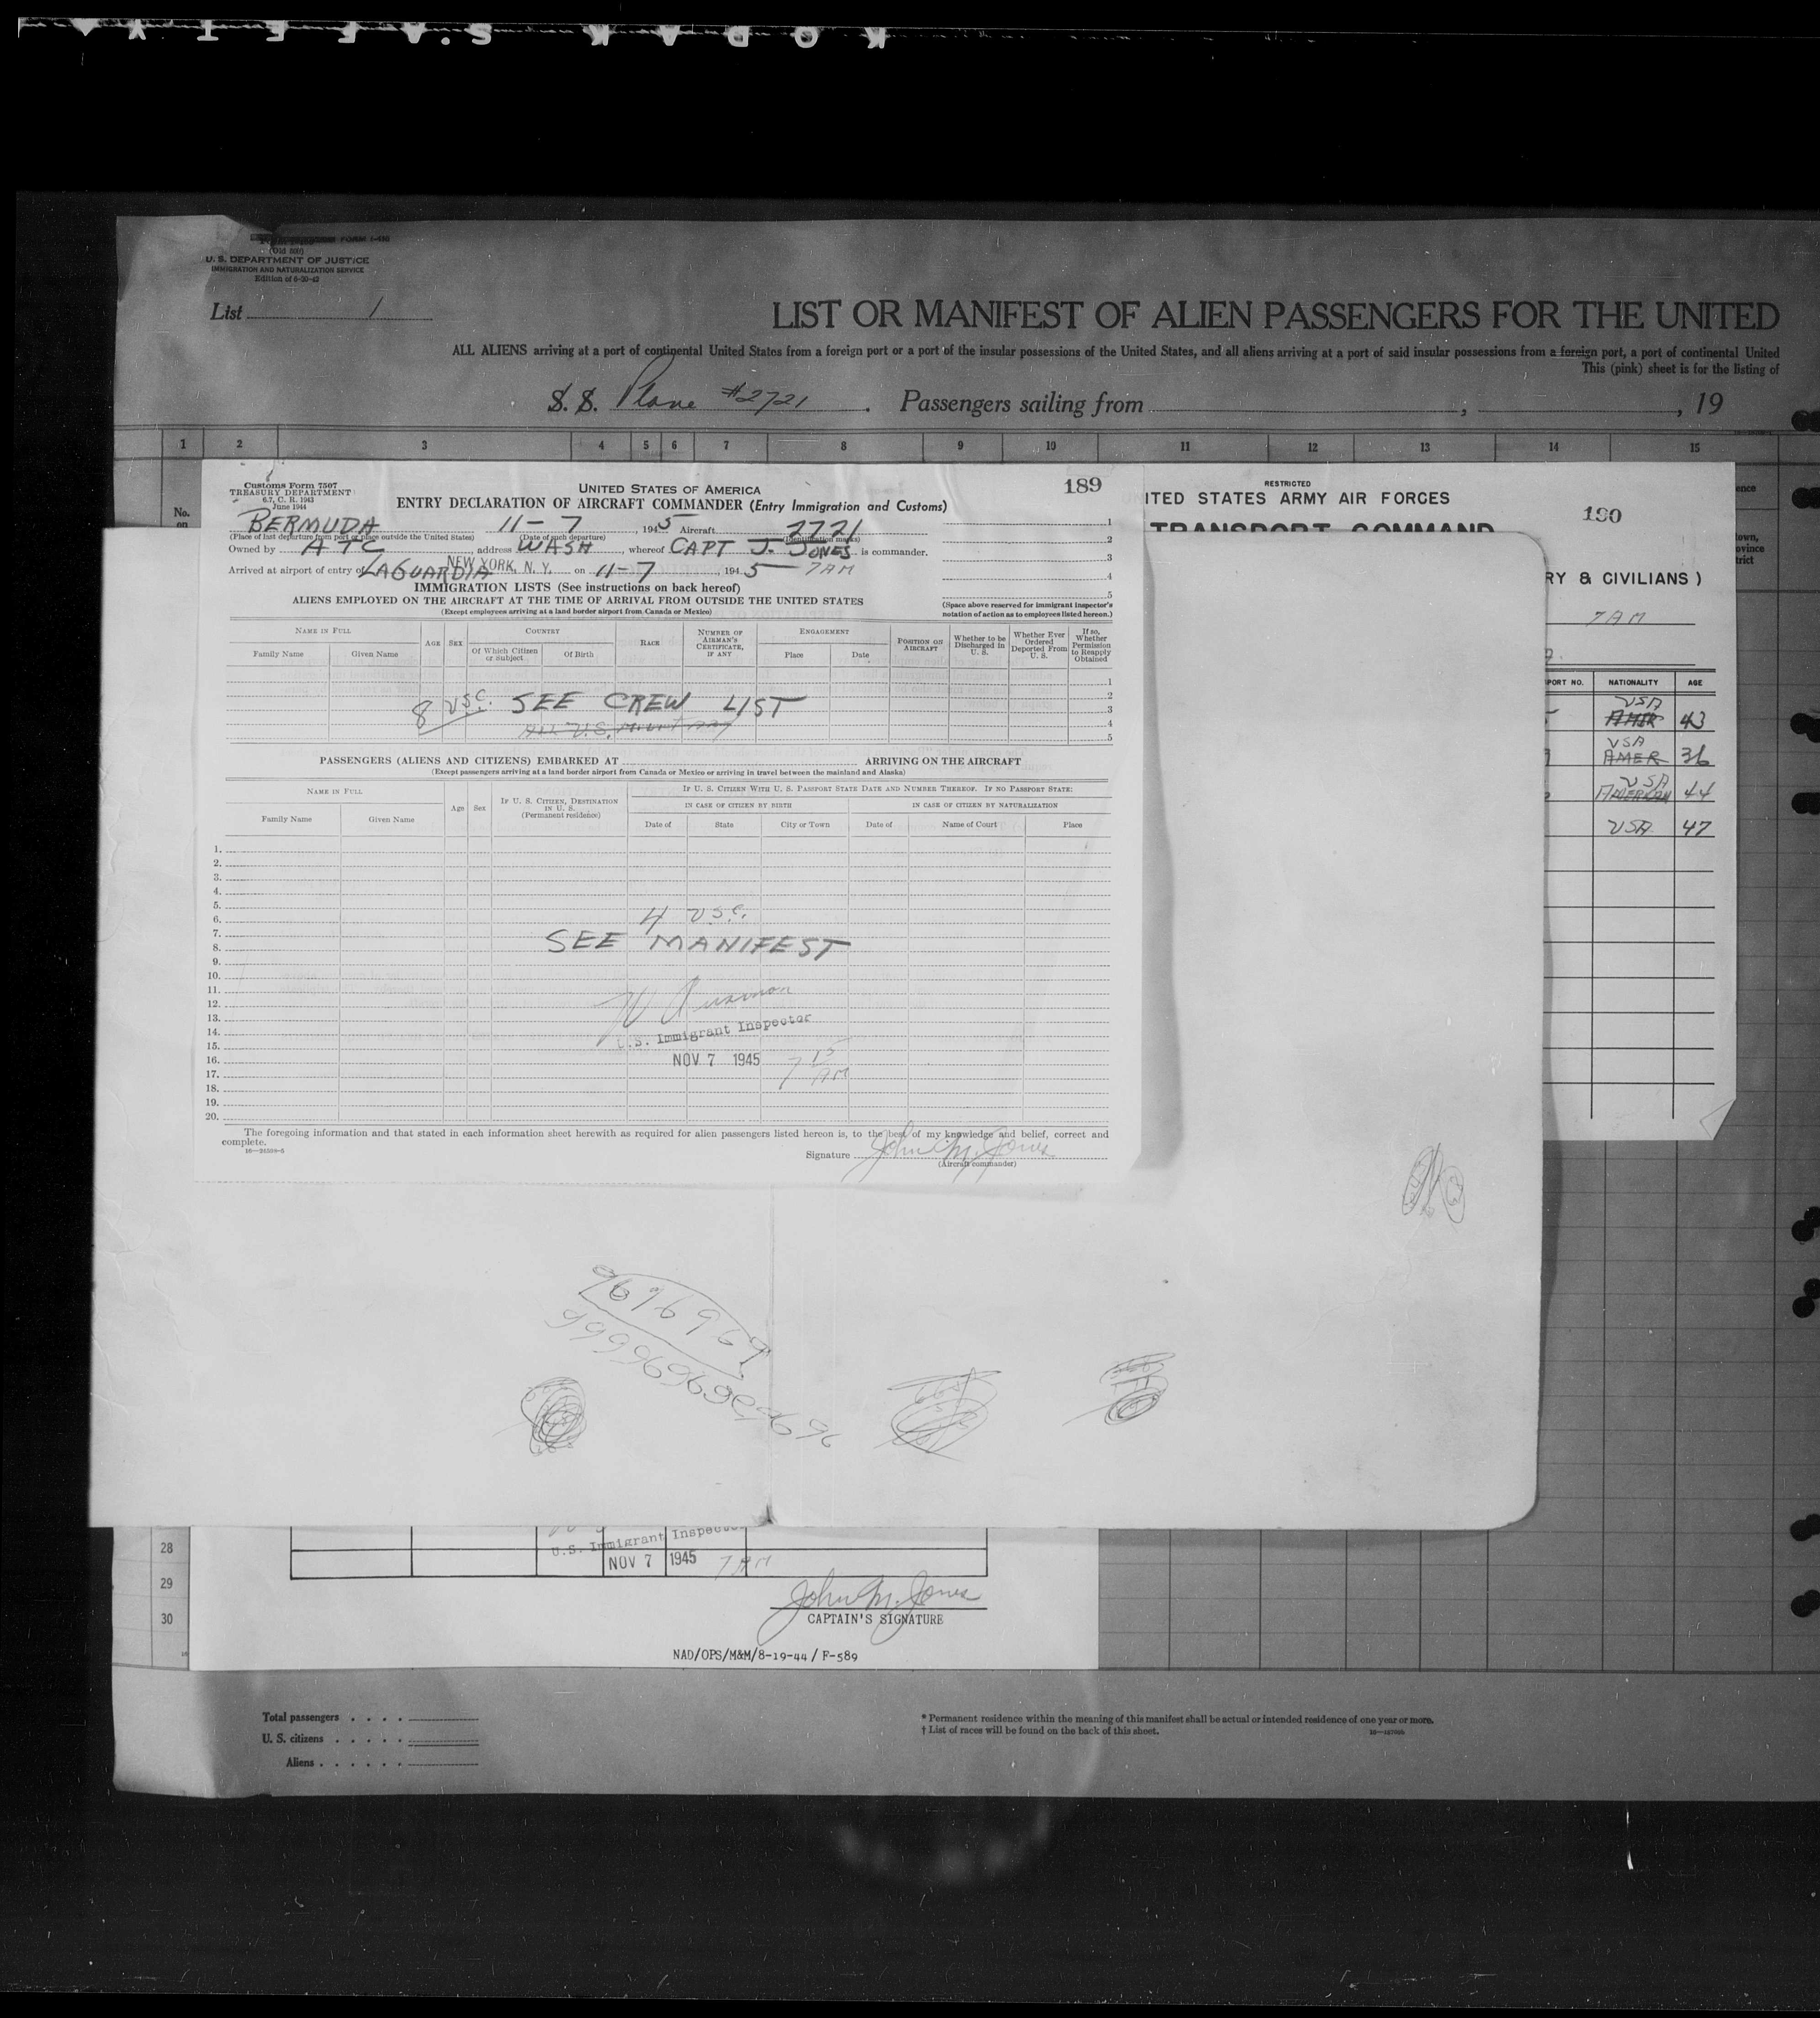 FORM I-430
(Old 500)
U. S. DEPARTMENT OF JUSTICE
IMMIGRATION AND NATURALIZATION SERVICE
Edition of 6-20-42
List 1
LIST OR MANIFEST OF ALIEN PASSENGERS FOR THE UNITED
ALL ALIENS arriving at a port of continental United States from a foreign port or a port of the insular possessions of the United States, and all aliens arriving at a port of said insular possessions from a foreign port, a port of continental United
This (pink) sheet is for the listing of
S. S. Plane #2721 . Passengers sailing from , , 19
1 2 3 4 5 6 7 8 9 10 11 12 13 14 15
No.
on
Customs Form 7507
TREASURY DEPARTMENT
6.7, C. R. 1943
June 1944
UNITED STATES OF AMERICA
189
ENTRY DECLARATION OF AIRCRAFT COMMANDER (Entry Immigration and Customs)
BERMUDA 11-7, 1945 Aircraft 2721
(Place of last departure from port or place outside the United States) (Date of such departure) (Identification marks)
Owned by ATC, address WASH, whereof CAPT J. JONES is commander.
Arrived at airport of entry of LAGUARDIA NEW YORK, N. Y. on 11-7, 1945 7AM
1
2
3
4
5
(Space above reserved for immigrant inspector's
notation of action as to employees listed hereon.)
IMMIGRATION LISTS (See instructions on back hereof)
ALIENS EMPLOYED ON THE AIRCRAFT AT THE TIME OF ARRIVAL FROM OUTSIDE THE UNITED STATES
(Except employees arriving at a land border airport from Canada or Mexico)
NAME IN FULL
Family Name Given Name
AGE SEX
COUNTRY
Of Which Citizen or Subject Of Birth
RACE
NUMBER OF AIRMAN'S CERTIFICATE, IF ANY
ENGAGEMENT
Place Date
POSITION ON AIRCRAFT
Whether to be Discharged in U. S.
Whether Ever Ordered Deported From U. S.
If so, Whether Permission to Reapply Obtained
1
2
3
4
5
8 USC. SEE CREW LIST
ALL U.S. MILITARY
PASSENGERS (ALIENS AND CITIZENS) EMBARKED AT ARRIVING ON THE AIRCRAFT
(Except passengers arriving at a land border airport from Canada or Mexico or arriving in travel between the mainland and Alaska)
NAME IN FULL
Family Name Given Name
Age Sex
IF U. S. CITIZEN, DESTINATION IN U. S.
(Permanent residence)
IF U. S. CITIZEN WITH U. S. PASSPORT STATE DATE AND NUMBER THEREOF. IF NO PASSPORT STATE:
IN CASE OF CITIZEN BY BIRTH IN CASE OF CITIZEN BY NATURALIZATION
Date of State City or Town Date of Name of Court Place
1.
2.
3.
4.
5.
6.
7.
8.
9.
10.
11.
12.
13.
14.
15.
16.
17.
18.
19.
20.
4 USC.
SEE MANIFEST
U.S. Immigrant Inspector
NOV 7 1945 7 15 AM
The foregoing information and that stated in each information sheet herewith as required for alien passengers listed hereon is, to the best of my knowledge and belief, correct and
complete.
16—24598-5
Signature John M. Jones
(Aircraft commander)
RESTRICTED
ITED STATES ARMY AIR FORCES
190
TRANSPORT COMMAND
RY & CIVILIANS )
7AM
PORT NO. NATIONALITY AGE
USA
AMER 43
USA
AMER 36
USA
AMERICAN 44
USA 47
ence
town,
ovince
trict
9696969
28
29
30
U.S. Immigrant Inspector
NOV 7 1945 7AM
John M. Jones
CAPTAIN'S SIGNATURE
NAD/OPS/M&M/8-19-44 / F-589
Total passengers . . . .
U. S. citizens . . . . .
Aliens . . . . . .
* Permanent residence within the meaning of this manifest shall be actual or intended residence of one year or more.
† List of races will be found on the back of this sheet.